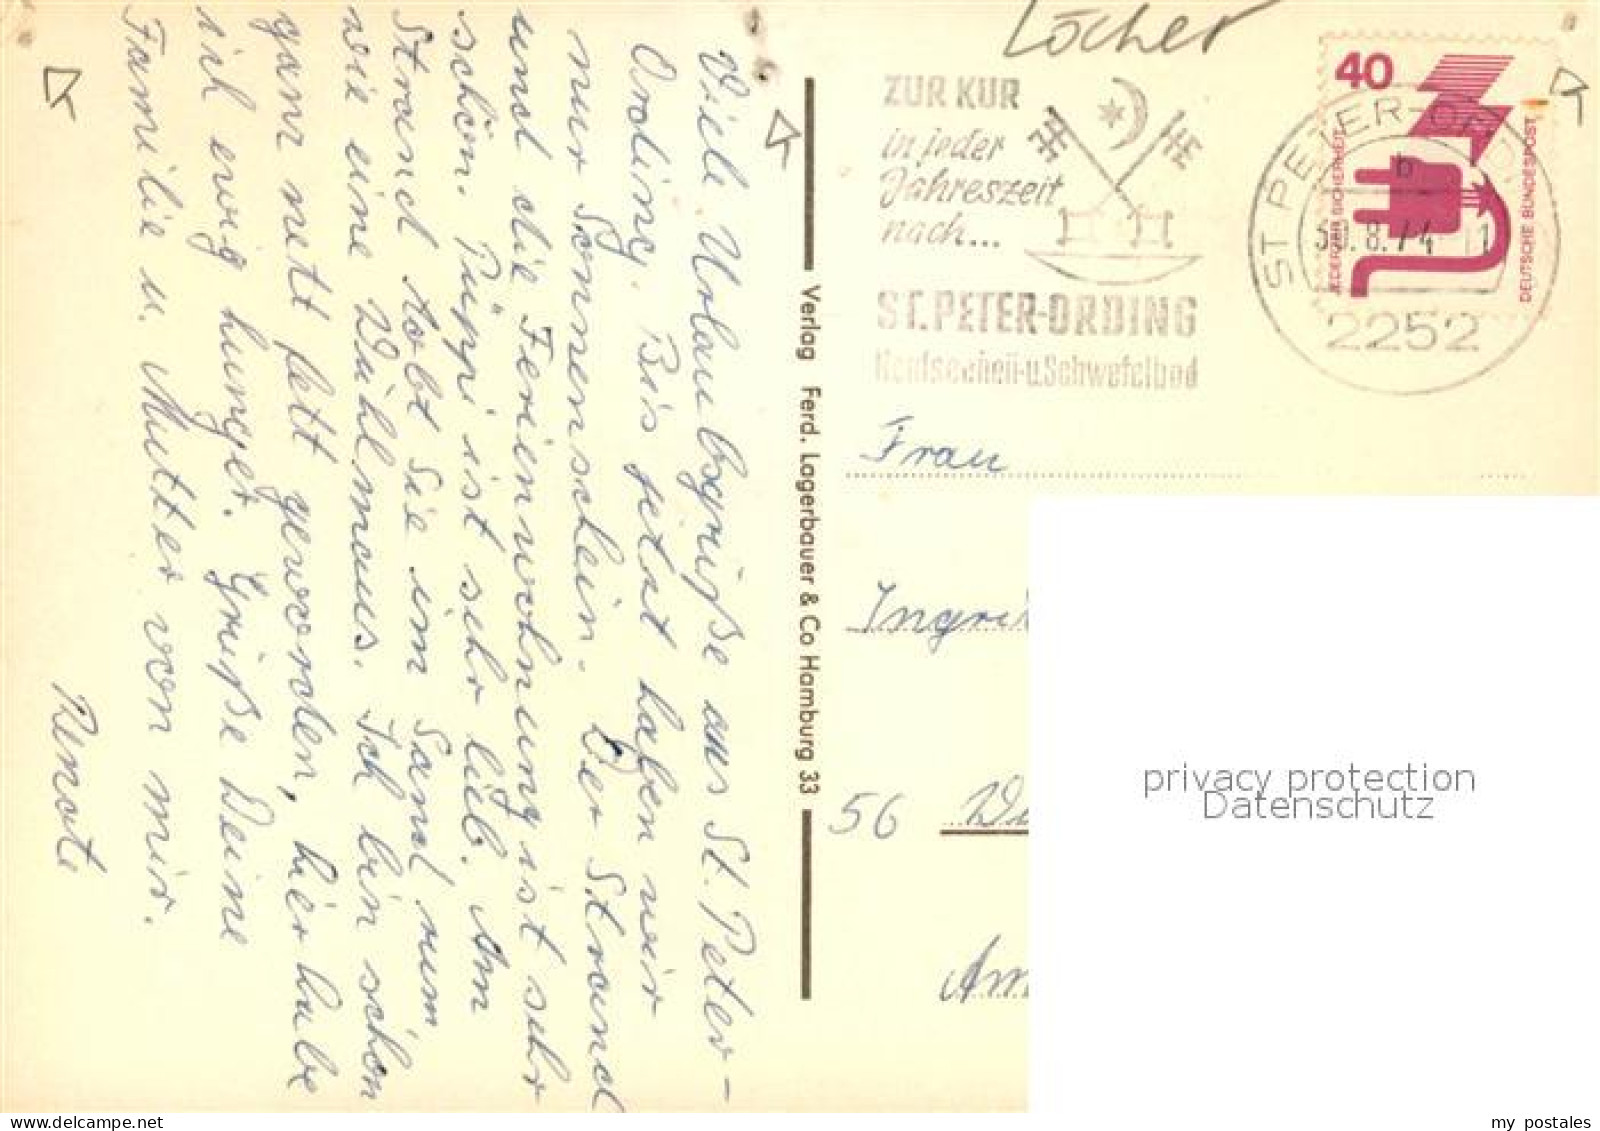 Löcher
ZUR KUR
in jeder
Jahreszeit
nach...
ST. PETER-ORDING
Nordseeheil-u.Schwefelbad
40
JEDERZEIT SICHERHEIT
DEUTSCHE BUNDESPOST
ST PETER-ORDING
b
30.8.74
2252
Viele Urlaubsgrüße aus St. Peter-
Ording. Bis jetzt haben wir
nur Sonnenschein. Der Strand
und die Ferienwohnung ist sehr
schön. Püppi ist sehr lieb. Am
Strand tobt Sie im Sand rum
wie eine Wühlmaus. Ich bin schon
ganz nett fett geworden, hier habe
ich ewig hunger. Grüße Deine
Familie u. Mutter von mir.
Renate
Verlag Ferd. Lagerbauer & Co Hamburg 33
Frau
Ingri
56 Wu
Am
privacy protection
Datenschutz
my postales